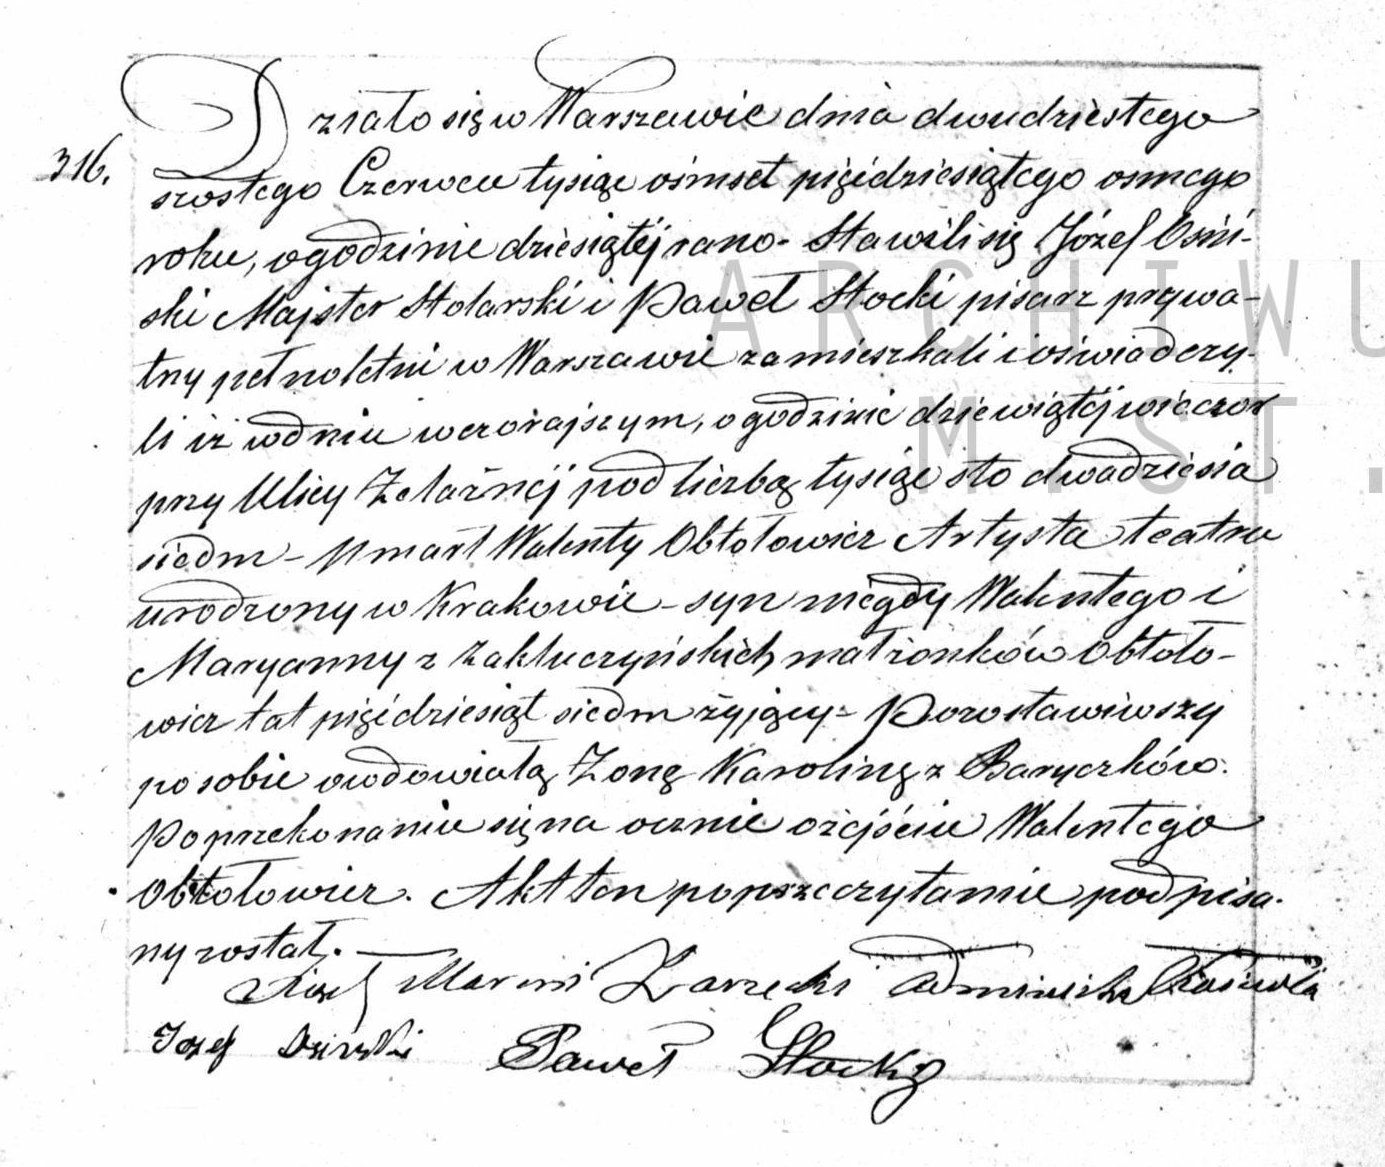 316.
Działo się w Warszawie dnia dwudziestego
szóstego Czerwca tysiąc ośmset pięćdziesiątego osmego
roku, o godzinie dziesiątéj rano. Stawili się Józef Osiń-
ski Majster Stolarski i Paweł Stocki pisarz prywa-
tny pełnoletni w Warszawie zamieszkali i oświadczy-
li iż w dniu wczorajszym, o godzinie dziewiątéj wieczor
przy Ulicy Żelaznéj pod liczbą tysiąc sto dwadzieścia
siedm – Umarł Walenty Obtołowicz Artysta teatru
urodzony w Krakowie – syn niegdy Walentego i
Maryanny z Zakluczyńskich małżonków Obtoło-
wicz lat pięćdziesiąt siedm żyjący – Pozostawiwszy
po sobie owdowiałą Żonę Karolinę z Baryczków.
Po przekonaniu się na ocznie o zejściu Walentego
Obtołowicz. Akt ten po przeczytaniu podpisa-
ny został. –
Zarzecki
Józef Osiński Paweł Stocki
ARCHIWU
M. ST.